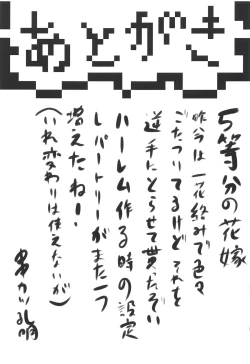 あとがき
5等分の花嫁
昨今は一花絡みで色々
ごたついてるけどそれを
逆手にとらせて貰ったぞい
ハーレム作る時の設定
レパートリーがまた一つ
増えたね!
(いれ変わりは使えないが)
カツ孔明